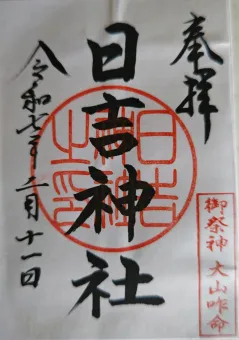 奉拝
日吉神社
日吉神社之印
令和七年二月十一日
御祭神 大山咋命